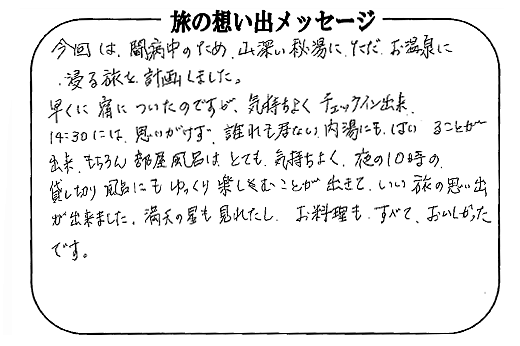 旅の想い出メッセージ
今回は、闘病中のため、山深い秘湯に、ただ、お温泉に
浸る旅を計画しました。
早くに宿についたのですが、気持ちよくチェックイン出来、
14:30には、思いがけず、誰れも居ない内湯にも、はいることが
出来、もちろん部屋風呂は、とても、気持ちよく、夜の10時の、
貸し切り風呂にもゆっくり楽しむことが出きて、いい旅の思い出
が出来ました。満天の星も見れたし、お料理も、すべて、おいしかった
です。